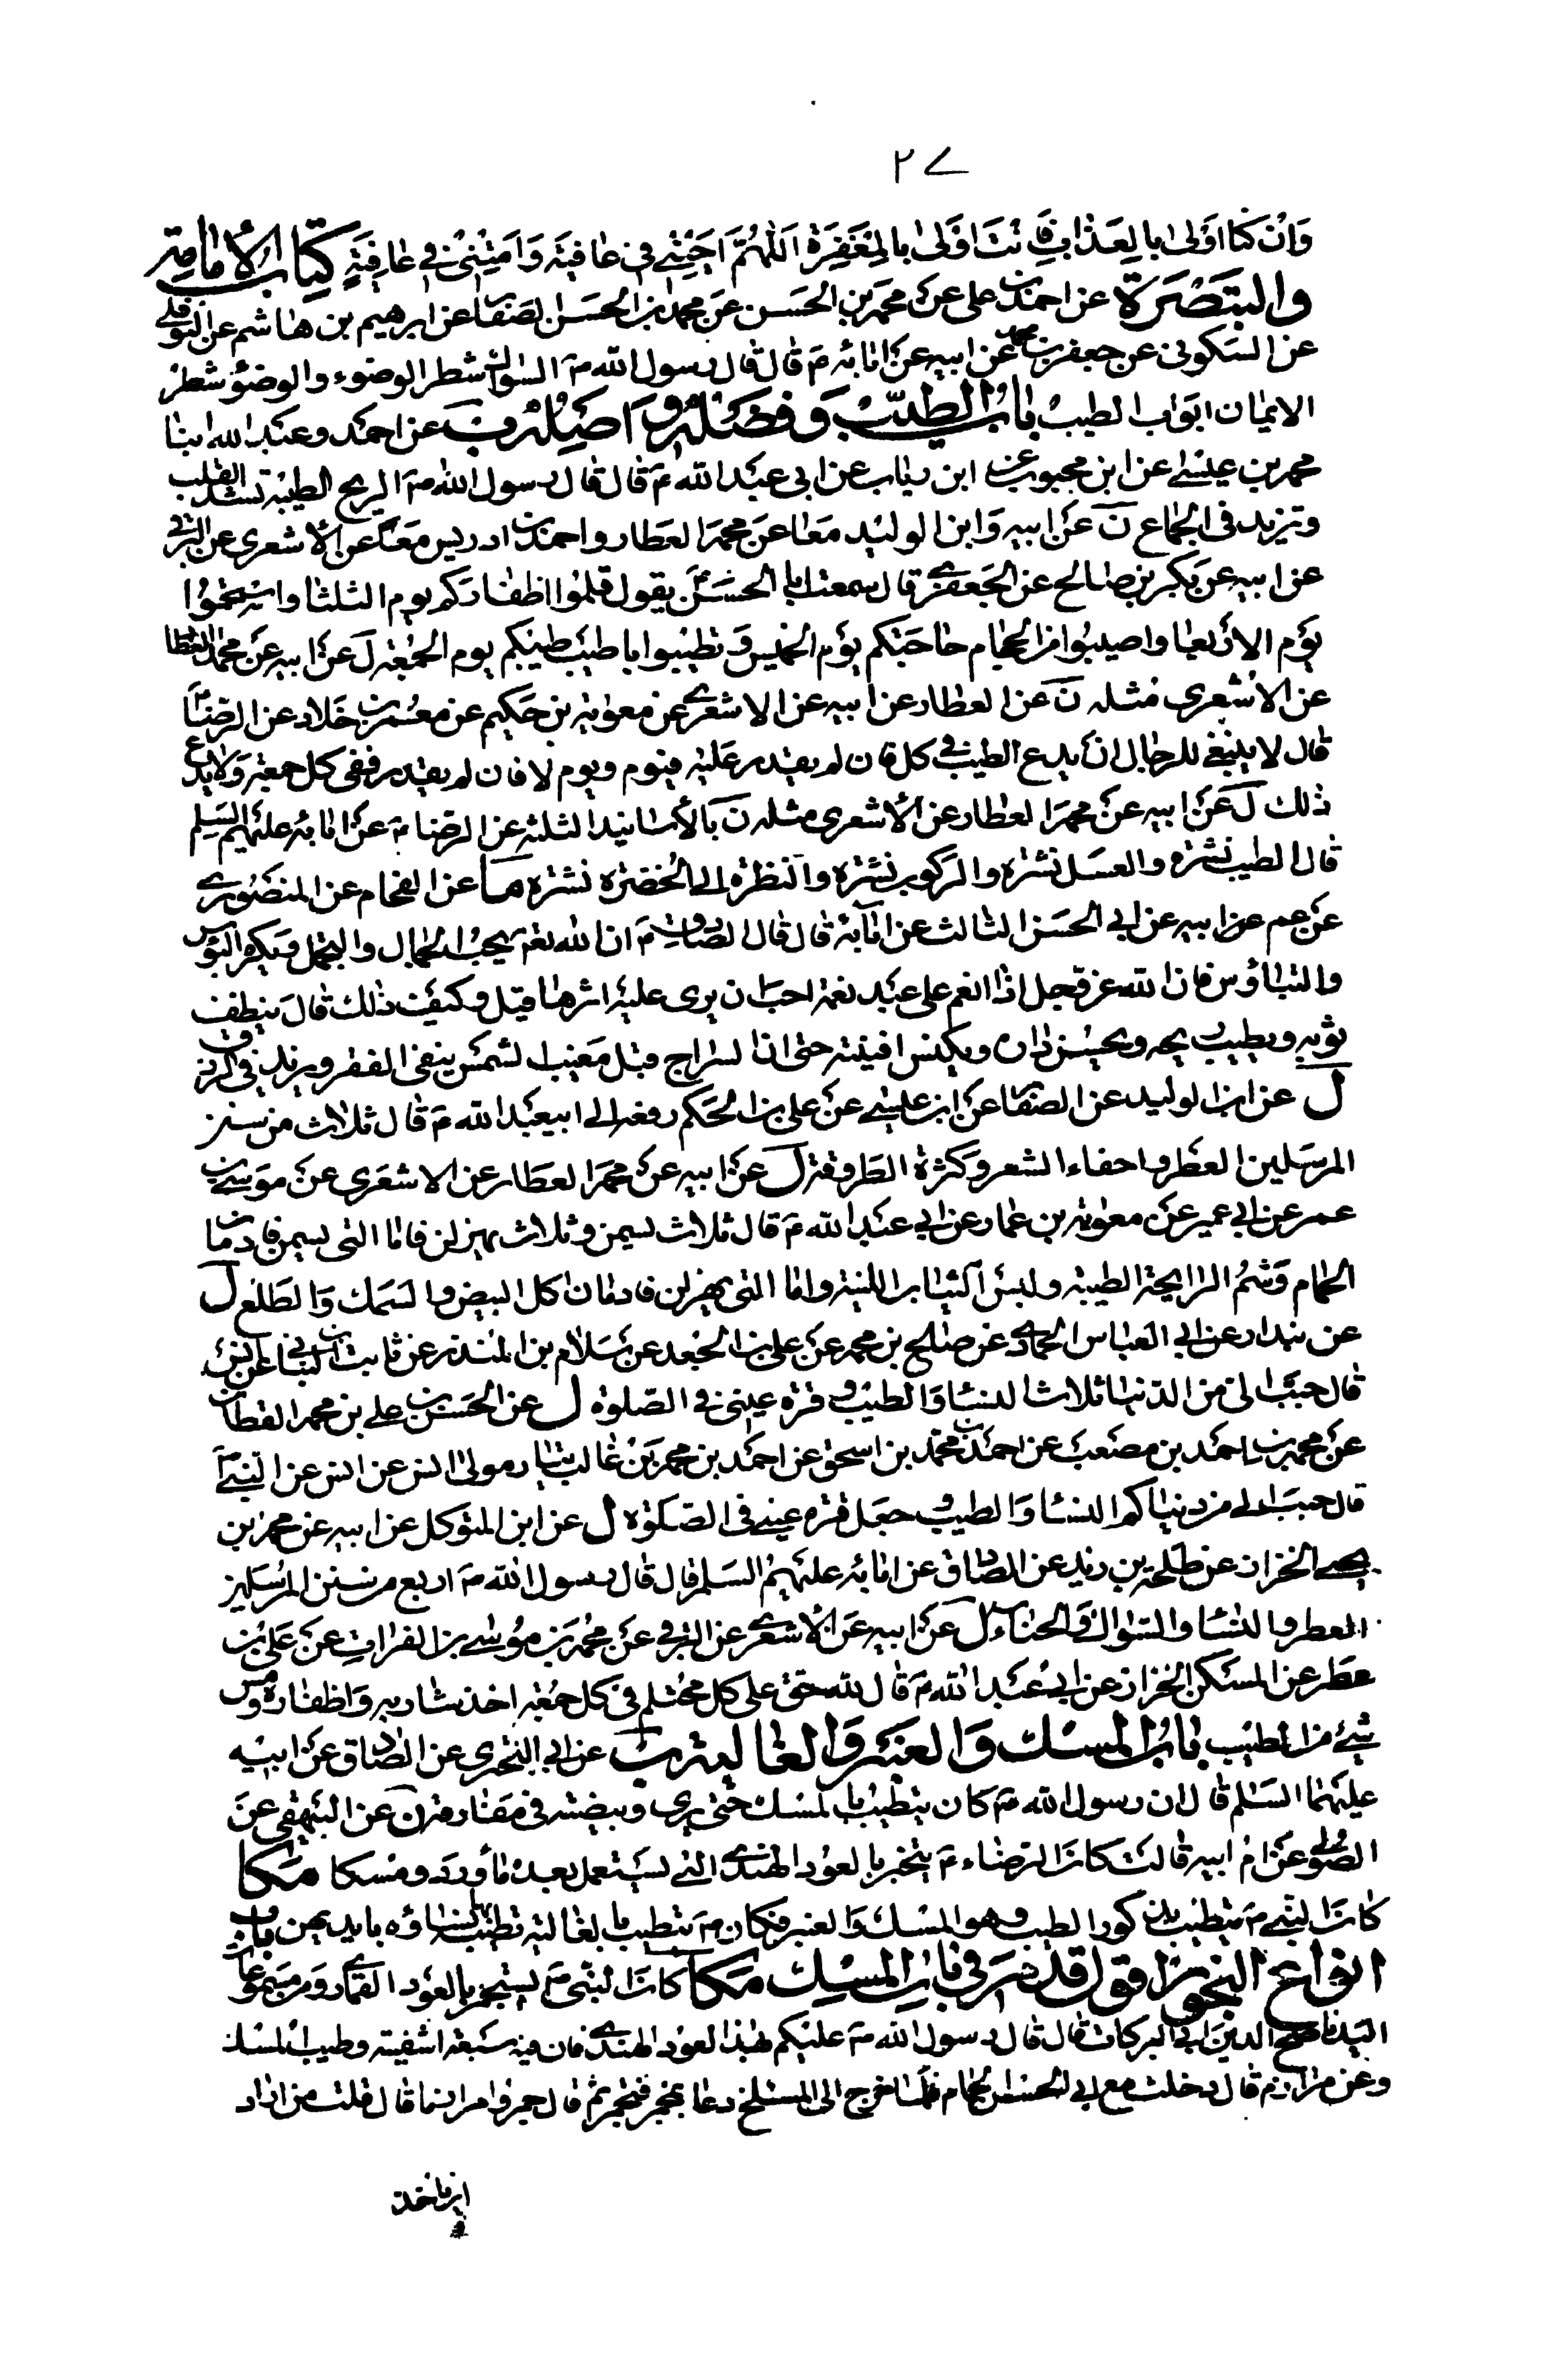 ٢٧
وَاِنْ كنّا اَوْلیٰ بالعذاب فَاَنْتَ اَوْلیٰ بالمغفرة اَللّٰهُمَّ اَحْیِنی فی عٰافیة وَاَمِتْنی فی عٰافیةٍ کتاب الأمامة
والتبصرة عن احمد بن علی عن محمد بن الحسن عن محمد بن الحسن الصفار عن ابرهیم بن هاشم عن النوفلی
عن السکونی عن جعفر بن محمد عن ابیه عن اٰبائه ع قال قال رسول الله ص السواک شطر الوضوء والوضوء شطر
الایمان ابواب الطیب باب الطیب وفضله واصله ب عن احمد وعبد الله ابنا
محمد بن عیسی عن ابن محبوب عن ابن رئاب عن ابی عبد الله ع قال قال رسول الله ص الریح الطیبة تشد القلب
وتزید فی الجماع ن عن ابیه وابن الولید معا عن محمد العطار واحمد بن ادریس معا عن الأشعری عن البرقی
عن ابیه عن بکر بن صالح عن الجعفری قال سمعت ابا الحسن ع یقول قلموا اظفارکم یوم الثلثا واستحموا
یوم الاربعا واصیبوا من الحجام حاجتکم یوم الخمیس وتطیبوا باطیب طیبکم یوم الجمعة ل عن ابیه عن محمد العطار
عن الاشعری مثله ن عن العطار عن ابیه عن الاشعری عن معویة بن حکیم عن معمر بن خلاد عن الرضا ع
قال لا ینبغی للرجل ان یدع الطیب فی کل فان لم یقدر علیه فیوم ویوم لا فان لم یقدر ففی کل جمعة ولا یدع
ذلک ل عن ابیه عن محمد العطار عن الأشعری مثله ن بالأسانید الثلثة عن الرضا ع عن اٰبائه علیهم السلم
قال الطیب نشره والعسل نشره والرکوب نشره والنظرة الی الخضره نشره ما عن الفحام عن المنصوری
عن عم عن ابیه عن ابی الحسن الثالث عن اٰبائه قال قال الصادق ع ان الله تعٰ یحب الجمال والتجمل ویکره البؤس
والتباؤس فان الله عز وجل اذا انعم علی عبد نعمة احب ان یری علیه اثرها قیل وکیف ذلک قال ینظف
ثوبه ویطیب ریحه ویحسن داره ویکنس افنیته حتی ان السراج قبل مغیب الشمس ینفی الفقر ویزید فی الرزق
ل عن ابن الولید عن الصفار عن ابن عیسی عن علی بن الحکم رفعه الی ابیعبد الله ع قال ثلاث من سنن
المرسلین العطر واحفاء الشعر وکثرة الطروقة ل عن ابیه عن محمد العطار عن الاشعری عن موسی بن
عمر عن ابی عمیر عن معویة بن عمار عن ابی عبد الله ع قال ثلاث یسمن وثلاث یهزلن فاما التی یسمن فادمان
الحمام وشم الرایحة الطیبة ولبس الثیاب اللینة واما التی یهزلن فادمان اکل البیض والسمک والطلع ل
عن بندار عن ابی العباس الحمادی عن صالح بن محمد عن علی بن الجعد عن سلام بن المنذر عن ثابت البنانی عن انس
قال حبب الی من الدنیا ثلاث النسا والطیب وقرة عینی فی الصلوة ل عن الحسن بن علی بن محمد القطان
عن محمد بن احمد بن مصعب عن احمد بن محمد بن اسحق عن احمد بن محمد بن غالب یسار مولی انس عن انس عن النبی ص
قال حبب الی من دنیاکم النسا والطیب وجعل قرة عینی فی الصلوة ل عن ابن المتوکل عن ابیه عن محمد بن
یحیی الخزاز عن طلحة بن زید عن الصادق عن اٰبائه علیهم السلم قال قال رسول الله ص اربع من سنن المرسلین
العطر والنسا والسواک والحناء ل عن ابیه عن الأشعری عن البرقی عن محمد بن موسی بن الفرات عن علی بن
مطر عن السکن الخزاز عن ابی عبد الله ع قال لله حق علی کل محتلم فی کل جمعة اخذ شاربه واظفاره ومس
شیء من الطیب باب المسک والعنبر والغالیة ب عن ابی البختری عن الصادق عن ابیه
علیهما السلم قال ان رسول الله ص کان یتطیب بالمسک حتی یری وبیضه فی مفارقه ن عن البیهقی عن
الصولی عن ام ابیه قالت کان الرضاء ع یتبخر بالعود الهندی النی یستعمل بعده ماورد ومسکا مکا
کان النبی ص یتطیب بذکور الطیب وهو المسک والعنبر وکان ص یتطیب بالغالیة تطیبه بها نساؤه بایدیهن باب
انواع البخور اقول قد مر فی باب المسک مکا کان النبی ص یستجمر بالعود القماری ومن مسموعات
السید ناصح الدین ابی البرکات قال قال رسول الله ص علیکم بهذا العود الهندی فان فیه سبعة اشفیة وطیب المسک
وعن مرازم قال دخلت مع ابی الحسن الحمام فلما خرج الی المسلخ دعا بمجمر فتجمر ثم قال جمروا مرازما قال قلت من اراد